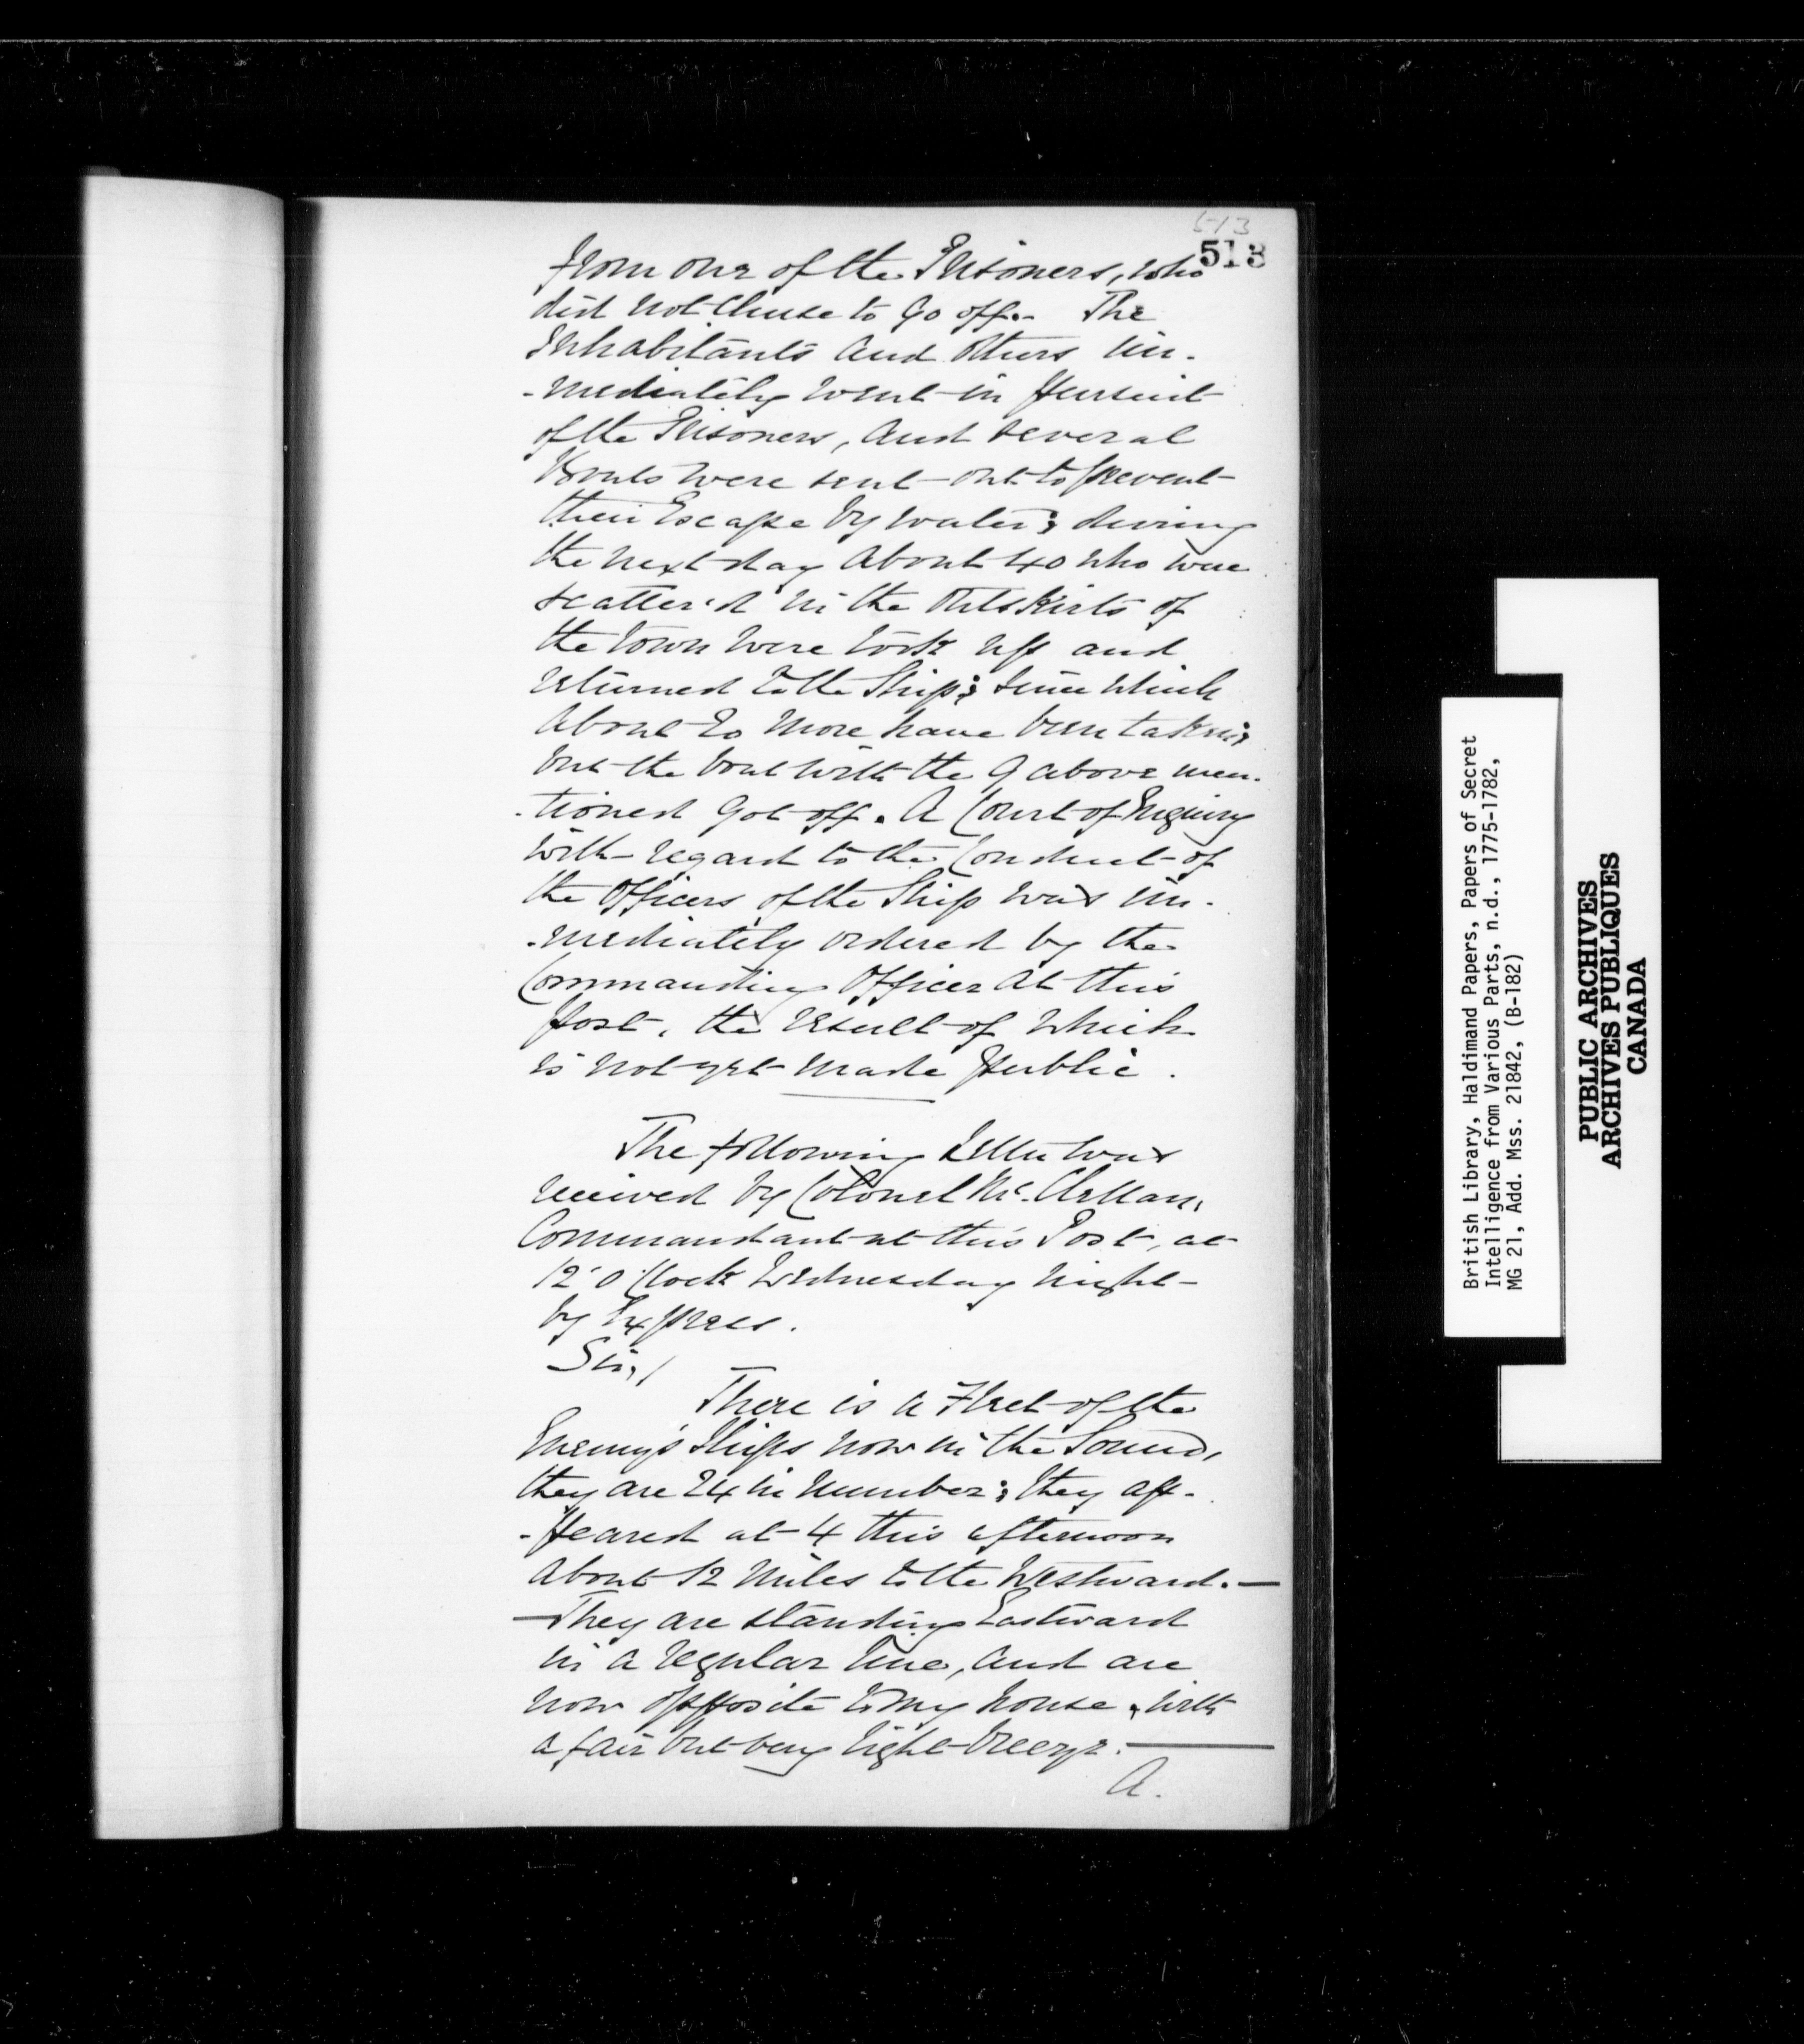 513
513
from one of the Prisoners, who
did not chuse to go off.- The
Inhabitants and others im-
-mediately went in pursuit
of the Prisoners, and several
Boats were sent out to prevent
their Escape by water; during
the next day about 40 who were
scatter'd in the outskirts of
the town were took up and
returned to the Ship; since which
about 20 more have been taken;
but the boat with the 9 above men-
-tioned got off. A Court of Enquiry
with regard to the Conduct of
the Officers of the Ship was im-
-mediately ordered by the
Commanding Officer at this
Post, the result of which
is not yet made public.
The following Letter was
received by Colonel Mc.Clellan,
Commandant at this Post, at
12 o'Clock Wednesday night
by Express.
Sir,/
There is a Fleet of the
Enemy's Ships now in the Sound,
they are 24 in number; they ap-
-peared at 4 this afternoon
about 12 Miles to the Westward.—
—They are standing Eastward
in a regular line, and are
now opposite to my house, with
a fair but very light breeze.—
A.
British Library, Haldimand Papers, Papers of Secret
Intelligence from Various Parts, n.d., 1775-1782,
MG 21, Add. Mss. 21842, (B-182)
PUBLIC ARCHIVES
ARCHIVES PUBLIQUES
CANADA